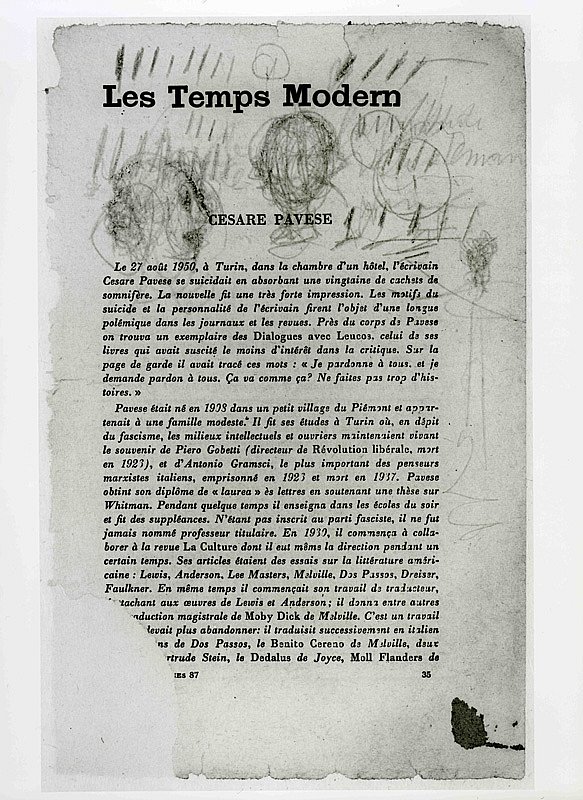 Les Temps Modern
CESARE PAVESE
Le 27 août 1950, à Turin, dans la chambre d'un hôtel, l'écrivain
Cesare Pavese se suicidait en absorbant une vingtaine de cachets de
somnifère. La nouvelle fit une très forte impression. Les motifs du
suicide et la personnalité de l'écrivain firent l'objet d'une longue
polémique dans les journaux et les revues. Près du corps de Pavese
on trouva un exemplaire des Dialogues avec Leucos, celui de ses
livres qui avait suscité le moins d'intérêt dans la critique. Sur la
page de garde il avait tracé ces mots : « Je pardonne à tous, et je
demande pardon à tous. Ça va comme ça? Ne faites pas trop d'his-
toires. »
Pavese était né en 1908 dans un petit village du Piémont et appar-
tenait à une famille modeste. Il fit ses études à Turin où, en dépit
du fascisme, les milieux intellectuels et ouvriers maintenaient vivant
le souvenir de Piero Gobetti (directeur de Révolution libérale, mort
en 1926), et d'Antonio Gramsci, le plus important des penseurs
marxistes italiens, emprisonné en 1926 et mort en 1937. Pavese
obtint son diplôme de « laurea » ès lettres en soutenant une thèse sur
Whitman. Pendant quelque temps il enseigna dans les écoles du soir
et fit des suppléances. N'étant pas inscrit au parti fasciste, il ne fut
jamais nommé professeur titulaire. En 1930, il commença à colla-
borer à la revue La Culture dont il eut même la direction pendant un
certain temps. Ses articles étaient des essais sur la littérature améri-
caine : Lewis, Anderson, Lee Masters, Melville, Dos Passos, Dreiser,
Faulkner. En même temps il commençait son travail de traducteur,
tachant aux œuvres de Lewis et Anderson ; il donna entre autres
aduction magistrale de Moby Dick de Melville. C'est un travail
devait plus abandonner: il traduisit successivement en italien
ns de Dos Passos, le Benito Cereno de Melville, deux
rtrude Stein, le Dedalus de Joyce, Moll Flanders de
ES 87 35